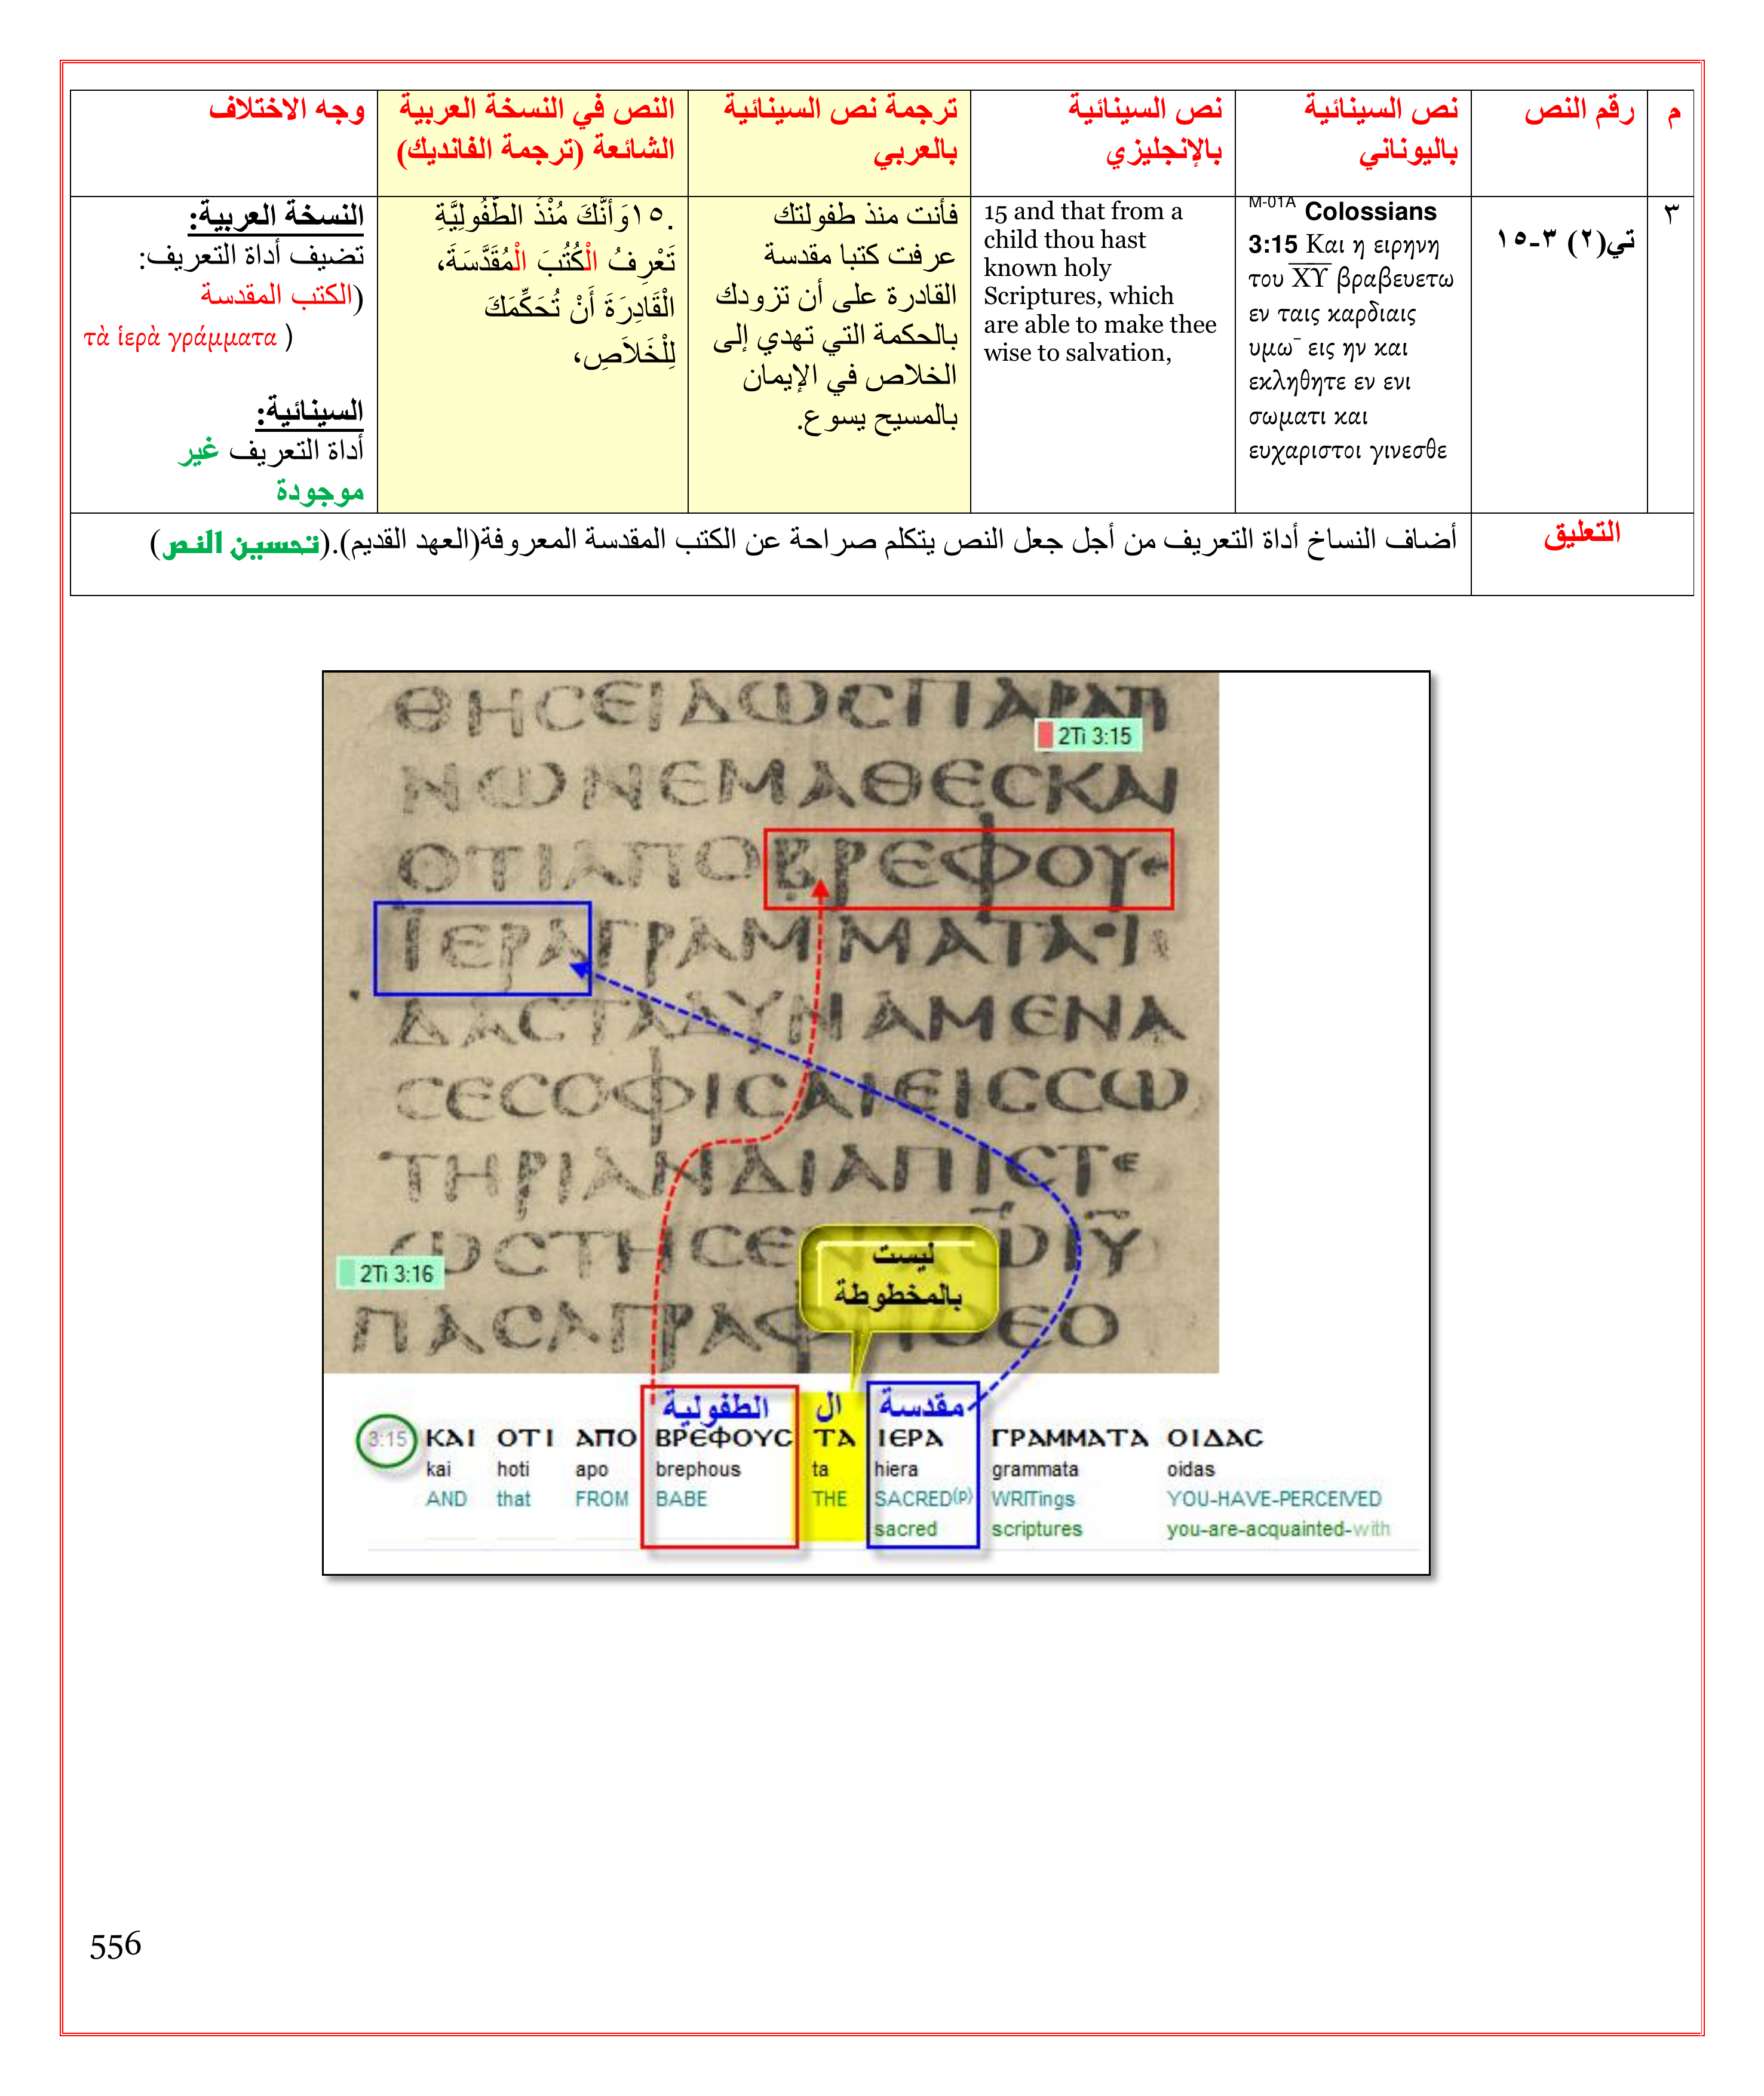 م
رقم النص
نص السينائية
باليوناني
نص السينائية
بالإنجليزي
ترجمة نص السينائية
بالعربي
النص في النسخة العربية
الشائعة (ترجمة الفانديك)
وجه الاختلاف
٣
تي(٢) ٣-١٥
M-01A Colossians
3:15 Και η ειρηνη
του Χ̅Υ̅ βραβευετω
εν ταις καρδιαις
υμω¯ εις ην και
εκληθητε εν ενι
σωματι και
ευχαριστοι γινεσθε
15 and that from a
child thou hast
known holy
Scriptures, which
are able to make thee
wise to salvation,
فأنت منذ طفولتك
عرفت كتبا مقدسة
القادرة على أن تزودك
بالحكمة التي تهدي إلى
الخلاص في الإيمان
بالمسيح يسوع.
.١٥وَأَنَّكَ مُنْذُ الطُّفُولِيَّةِ
تَعْرِفُ الْكُتُبَ الْمُقَدَّسَةَ،
الْقَادِرَةَ أَنْ تُحَكِّمَكَ
لِلْخَلاَصِ،
النسخة العربية:
تضيف أداة التعريف:
(الكتب المقدسة
τὰ ἱερὰ γράμματα )
السينائية:
أداة التعريف غير
موجودة
التعليق
أضاف النساخ أداة التعريف من أجل جعل النص يتكلم صراحة عن الكتب المقدسة المعروفة(العهد القديم).(تحسين النص)
ΘΗCΕΙΔΩCΠΑΡΑΤΙ
2Ti 3:15
ΝΩΝΕΜΑΘΕCΚΑΙ
ΟΤΙΑΠΟΒΡΕΦΟΥC
ΙΕΡΑΓΡΑΜΜΑΤΑΟΙ
ΔΑCΤΑΔΥΝΑΜΕΝΑ
CΕCΟΦΙCΑΙΕΙCCΩ
ΤΗΡΙΑΝΔΙΑΠΙCΤΕ
ΩCΤΗCΕΝΧΩΙΥ
ليست
بالمخطوطة
2Ti 3:16
ΠΑCΑΓΡΑΦΗΘΕΟ
الطفولية ال مقدسة
3:15 ΚΑΙ ΟΤΙ ΑΠΟ ΒΡΕΦΟΥC ΤΑ ΙΕΡΑ ΓΡΑΜΜΑΤΑ ΟΙΔΑC
kai hoti apo brephous ta hiera grammata oidas
AND that FROM BABE THE SACRED(p) WRITings YOU-HAVE-PERCEIVED
sacred scriptures you-are-acquainted-with
556